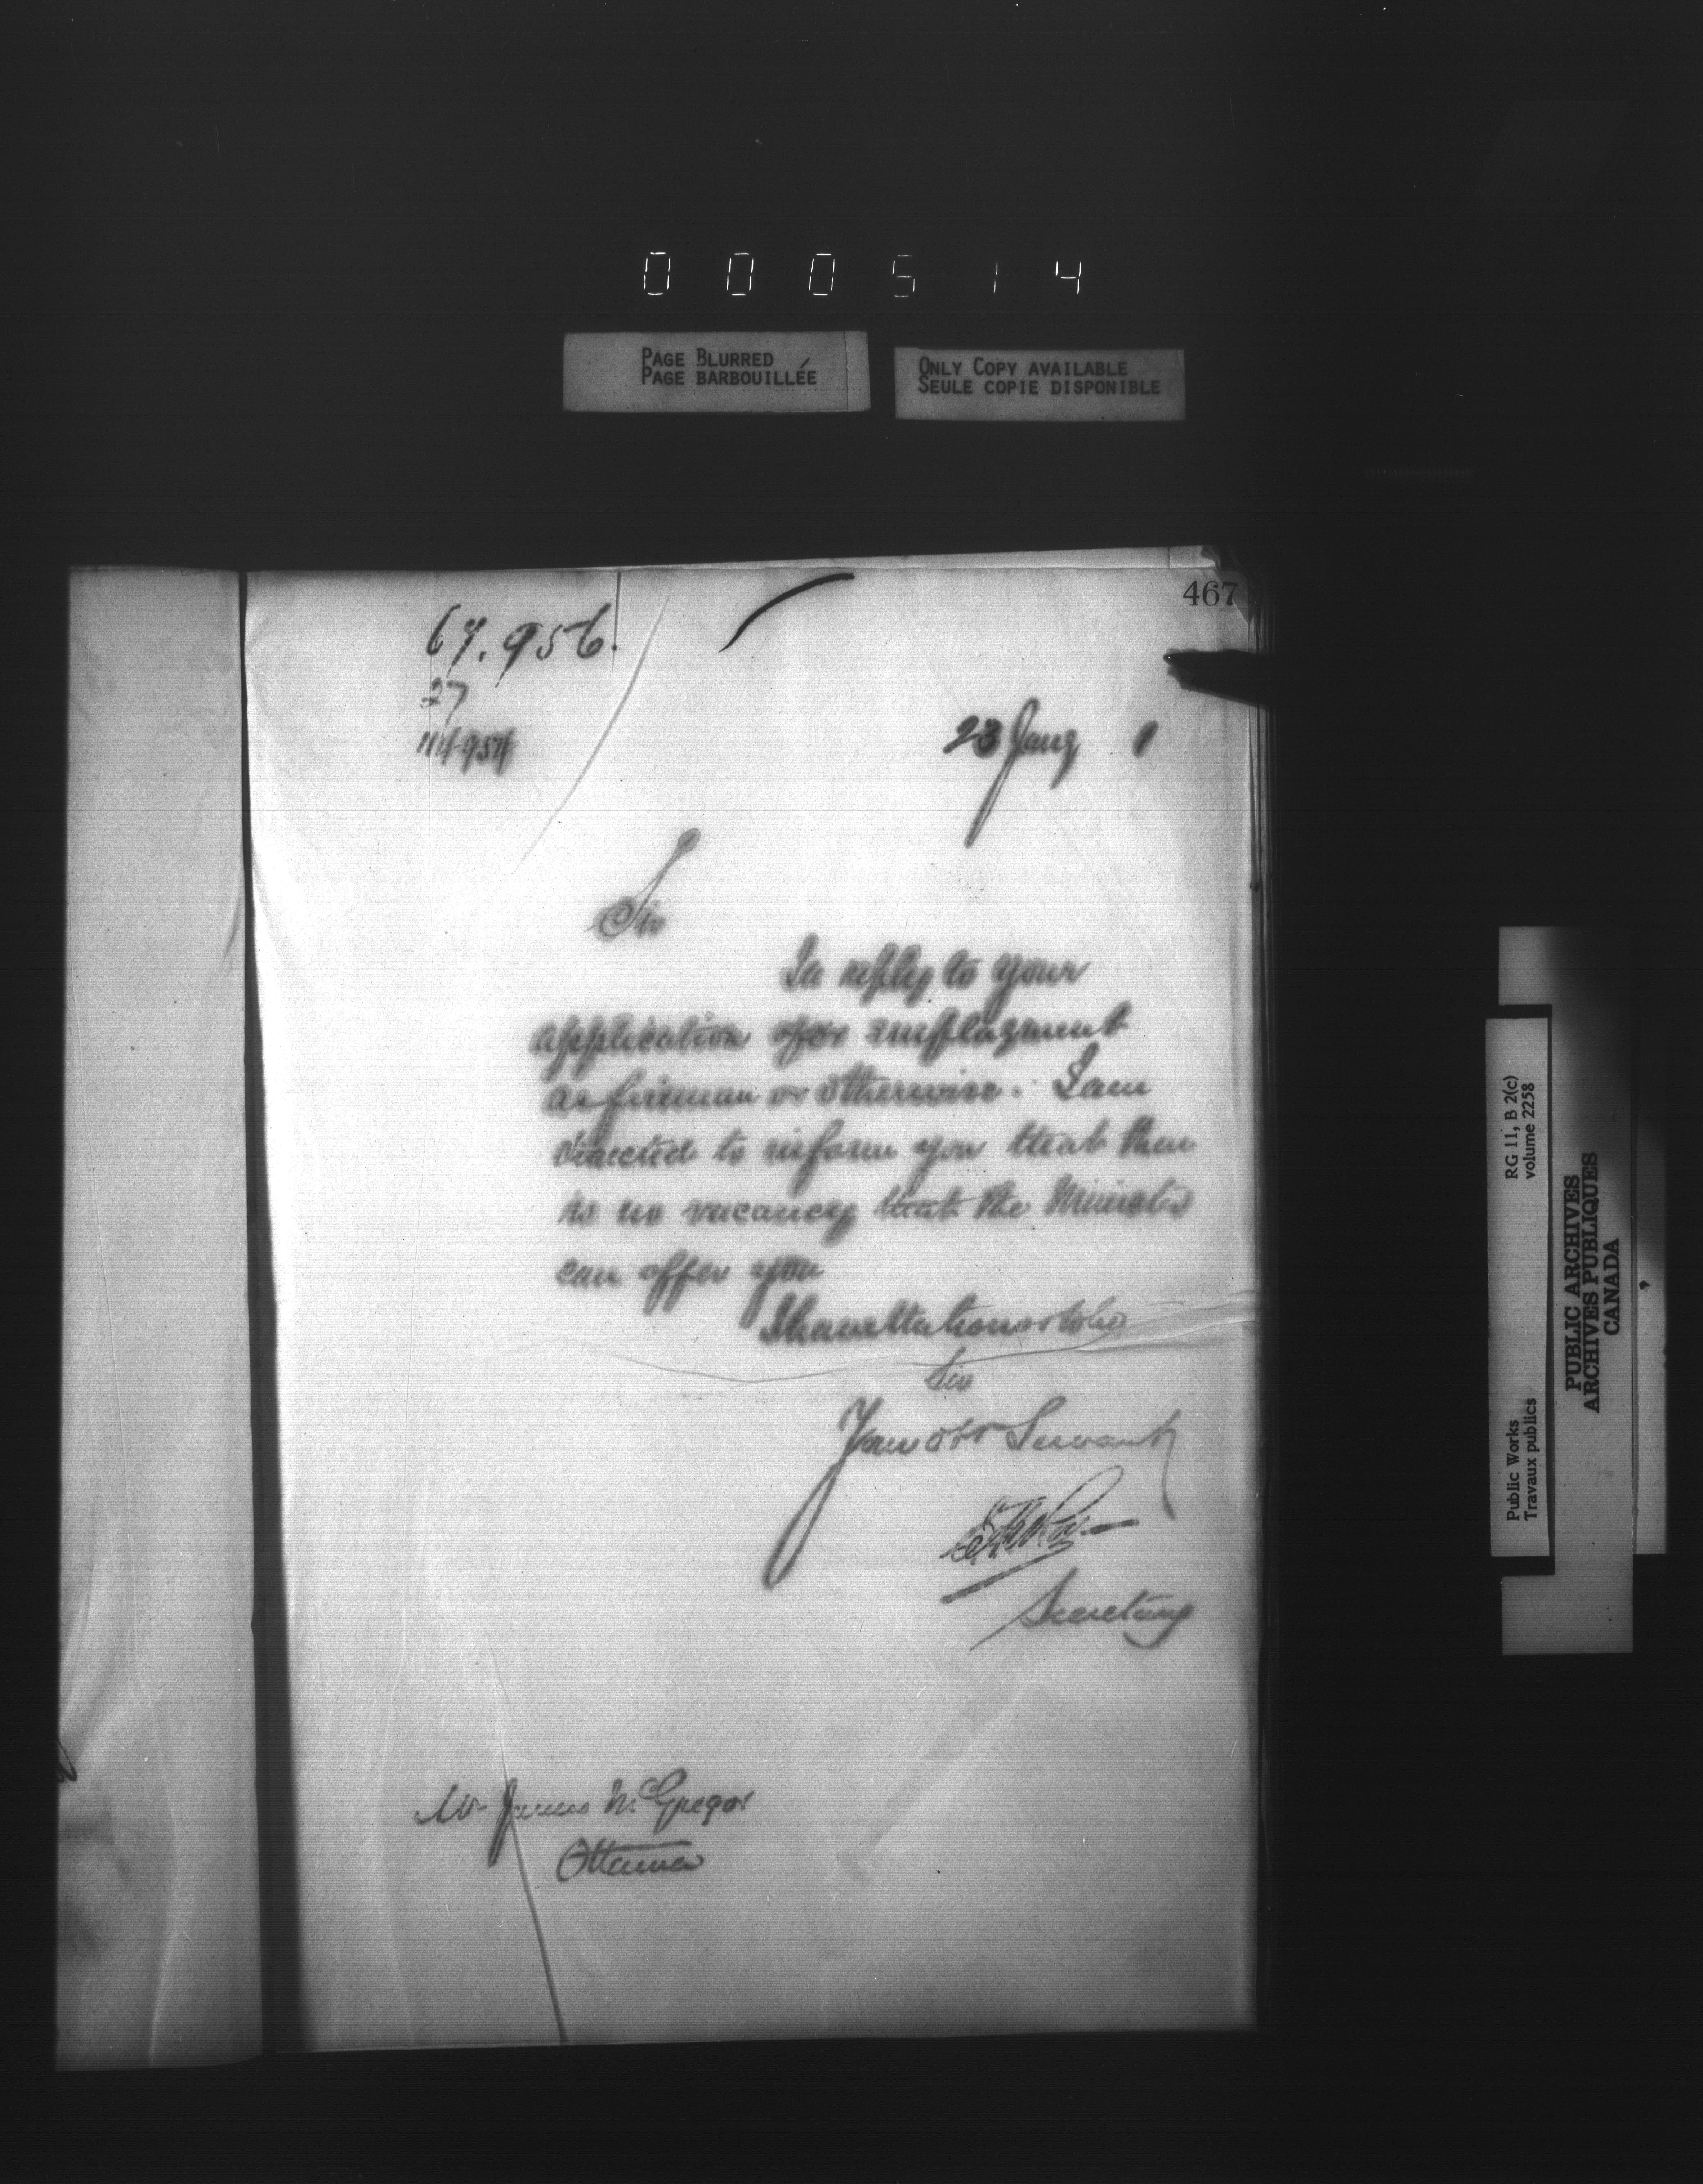 000514
PAGE BLURRED
PAGE BARBOUILLÉE
ONLY COPY AVAILABLE
SEULE COPIE DISPONIBLE
467
67.956.
27
23 Jany 1
Sir
In reply to your
application for employment
as fireman or otherwise. I am
directed to inform you that there
is no vacancy that the Minister
can offer you
I have the honor to be
Sir
Your obt Servant
Secretary
Mr James McGregor
Ottawa
RG 11, B 2(c)
volume 2258
Public Works
Travaux publics
PUBLIC ARCHIVES
ARCHIVES PUBLIQUES
CANADA